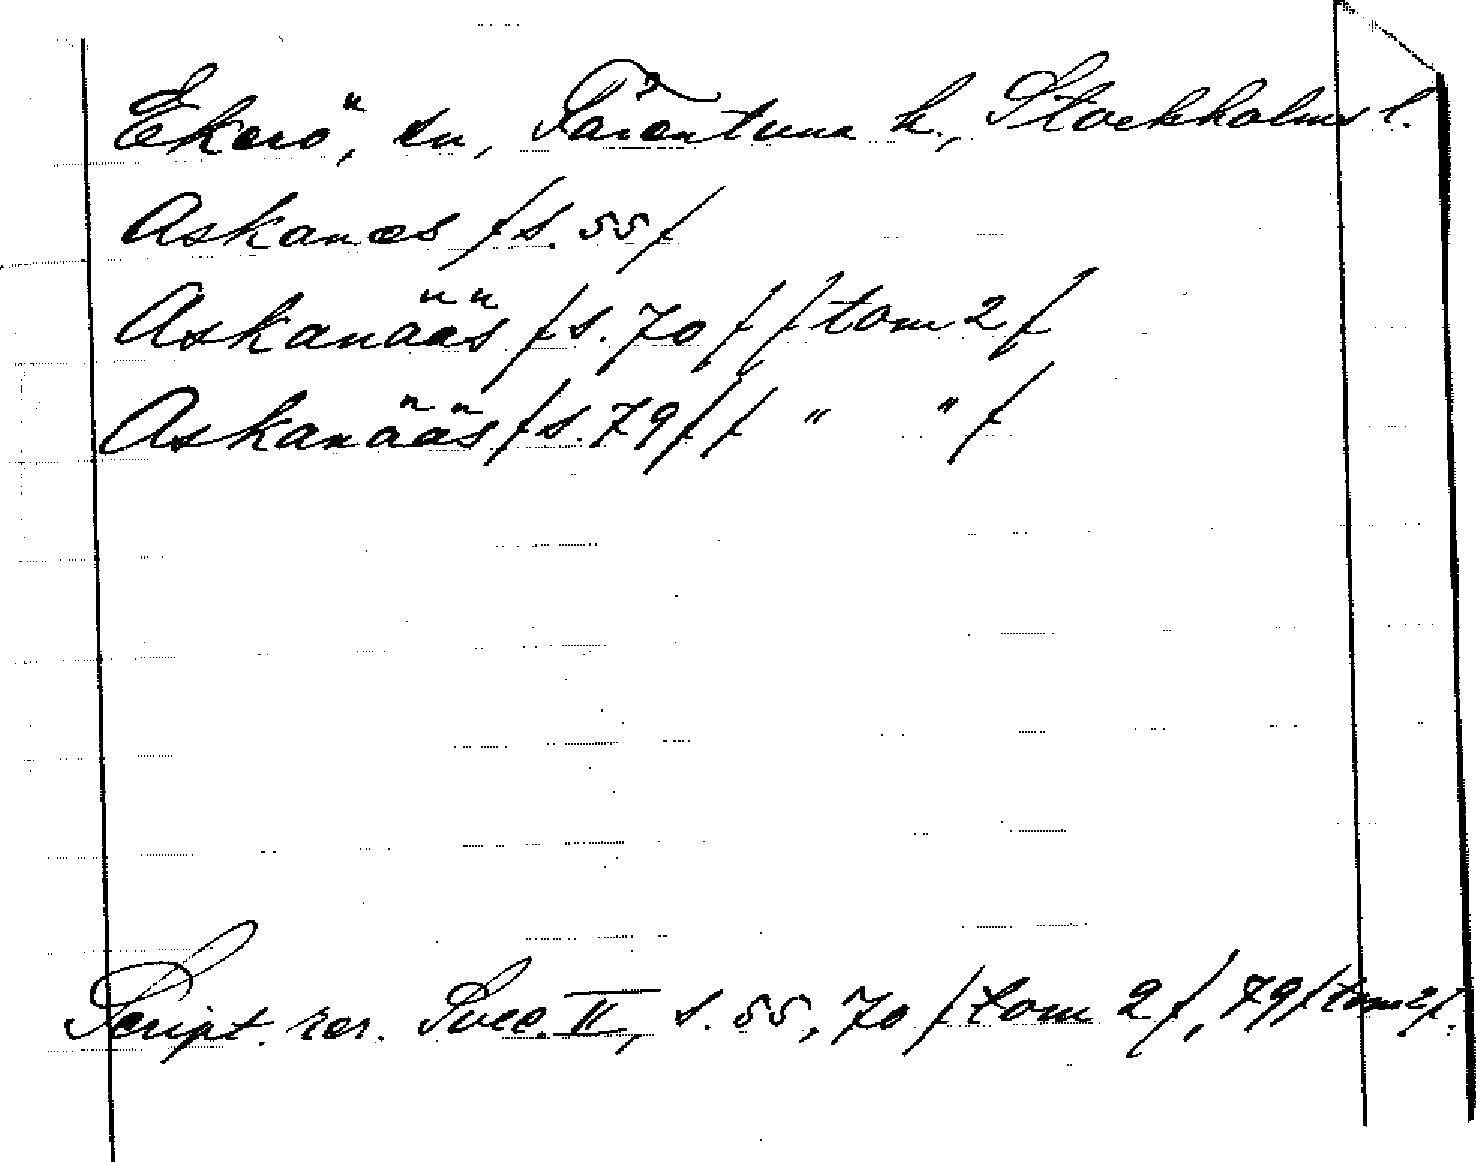 Ekerö, sn, Färentuna h., Stockholms l.
Askanæs /s. 55/
Askanääs /s. 70/ /tom 2/
Askanääs /s. 79/ / " " /
Script. rer. Svec. II, s. 55, 70 /tom 2/, 79/tom 2/.